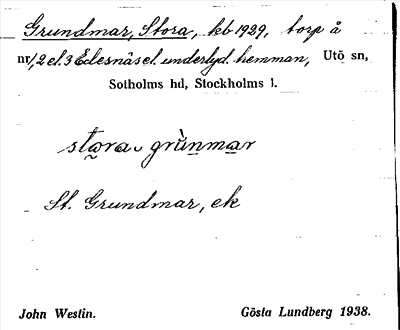 Grundmar, Stora, kb 1929, torp å
nr 1, 2 el. 3 Edesnäs el. underlyd. hemman, Utö sn,
Sotholms hd, Stockholms l.
stora grùnmar
St. Grundmar, ek
John Westin. Gösta Lundberg 1938.